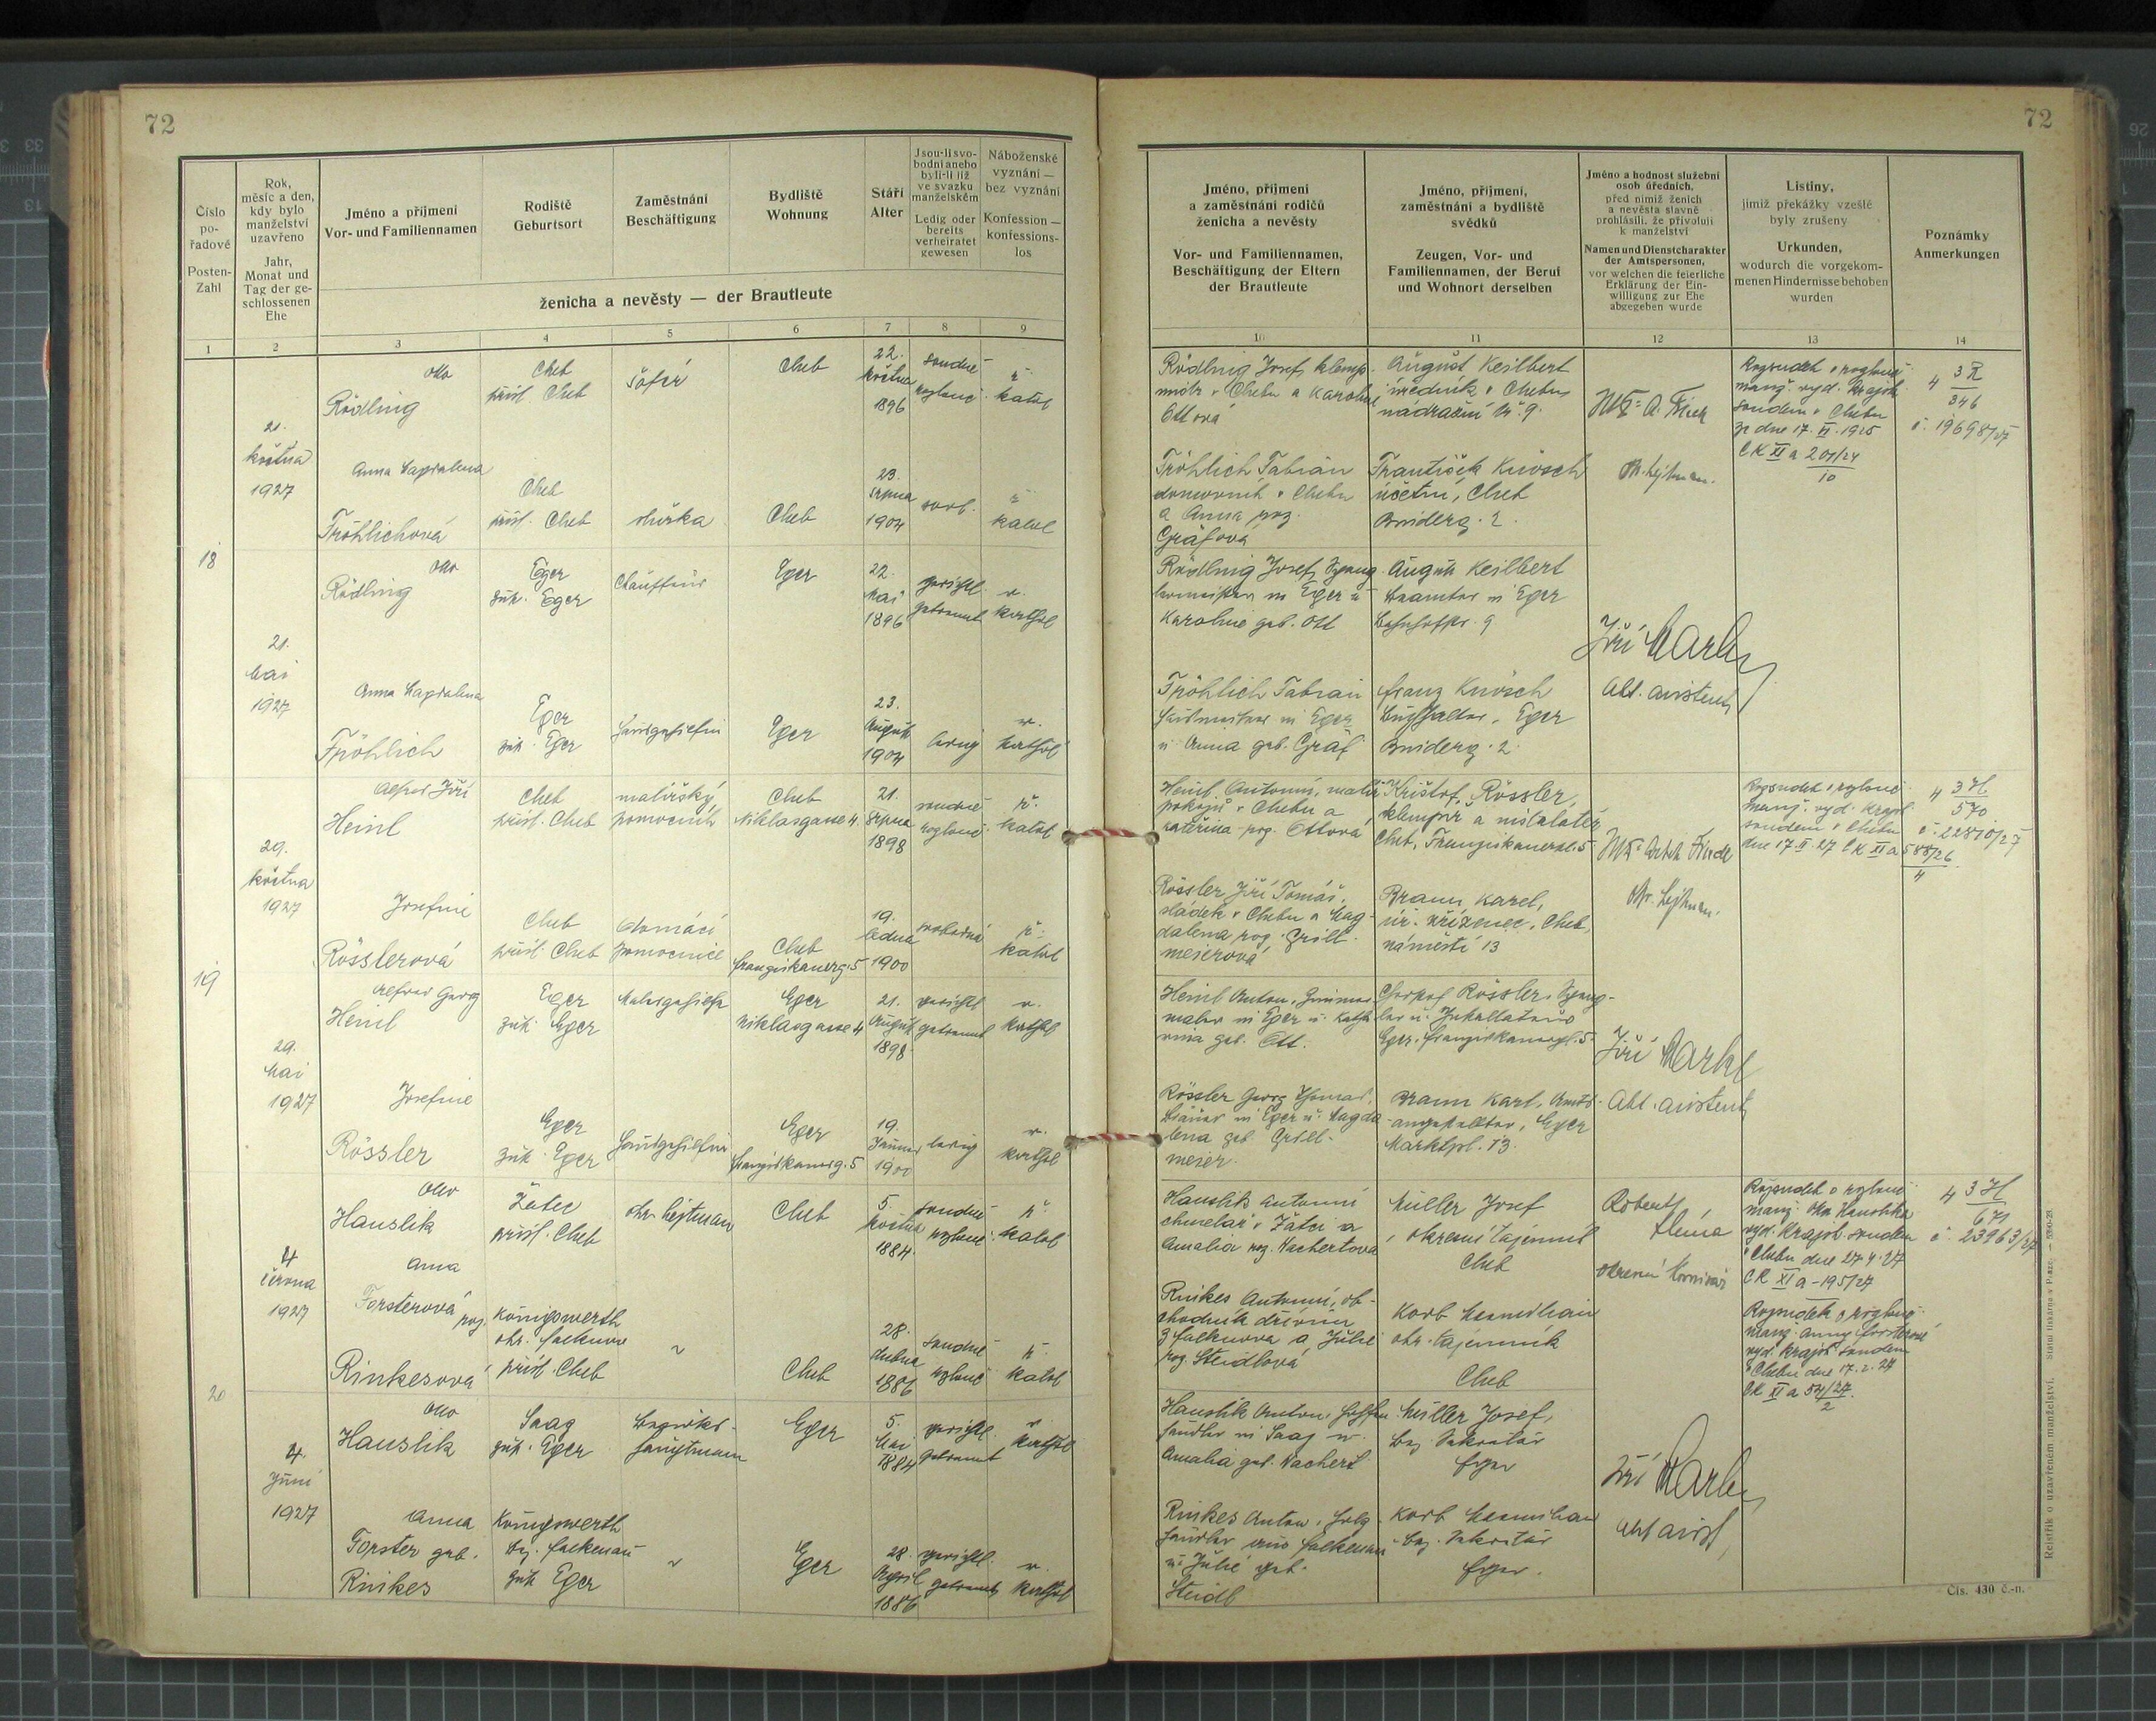 72
72
Číslo
po-
řadové
Posten-
Zahl
Rok,
měsíc a den,
kdy bylo
manželství
uzavřeno
Jahr,
Monat und
Tag der ge-
schlossenen
Ehe
Jméno a příjmení
Vor- und Familiennamen
Rodiště
Geburtsort
Zaměstnání
Beschäftigung
Bydliště
Wohnung
Stáří
Alter
Jsou-li svo-
bodni anebo
byli-li již
ve svazku
manželském
Ledig oder
bereits
verheiratet
gewesen
Náboženské
vyznání —
bez vyznání
Konfession —
konfessions-
los
ženicha a nevěsty — der Brautleute
1
2
3
4
5
6
7
8
9
Jméno, příjmení
a zaměstnání rodičů
ženicha a nevěsty
Vor- und Familiennamen,
Beschäftigung der Eltern
der Brautleute
Jméno, příjmení,
zaměstnání a bydliště
svědků
Zeugen, Vor- und
Familiennamen, der Beruf
und Wohnort derselben
Jméno a hodnost služební
osob úředních,
před nimiž ženich
a nevěsta slavně
prohlásili, že přivolují
k manželství
Namen und Dienstcharakter
der Amtspersonen,
vor welchen die feierliche
Erklärung der Ein-
willigung zur Ehe
abgegeben wurde
Listiny,
jimiž překážky vzešlé
byly zrušeny
Urkunden,
wodurch die vorgekom-
menen Hindernisse behoben
wurden
Poznámky
Anmerkungen
10
11
12
13
14
18
21.
května
1927
Otto
Rödling
Cheb
přísl. Cheb
šofér
Cheb
22.
května
1896
soudně
rozlouč.
ř.
katol
Rödling Josef, klemp.
mistr v Chebu a Karolina
Ottová
August Keilbert
úředník v Chebu
nádražní tř. 9.
Rozsudek o rozlouč.
manž. vyd. krajsk.
soudem v Chebu
ze dne 17. VI. 1925
CK XI a 201/24
10
4 3R
346
č. 19698/27
Anna Magdalena
Fröhlichová
Cheb
přísl. Cheb
služka
Cheb
23.
srpna
1904
svob.
ř.
katol
Fröhlich Fabian
domovník v Chebu
a Anna roz.
Gräfová
František Knösch
účetní, Cheb
Bruderg. 2.
Okr. hejtman.
21.
Mai
1927
Otto
Rödling
Eger
zust. Eger
Chauffeur
Eger
22.
Mai
1896
gerichtl.
getrennt
r.
kathol
Rödling Josef, Speng-
lermeister in Eger u.
Karoline geb. Ott
August Keilbert
Beamter in Eger
Bahnhofstr. 9
Jiří Markl
Abt. asistent
Anna Magdalena
Fröhlich
Eger
zust. Eger
Hausgehilfin
Eger
23.
August
1904
ledig
r.
kathol
Fröhlich Fabian
Hausmeister in Eger
u. Anna geb. Gräf
Franz Knösch
Buchhalter, Eger
Bruderg. 2.
19
29.
května
1927
Alfred Jiří
Heinl
Cheb
přísl. Cheb
malířský
pomocník
Cheb
Niklasgasse 4.
21.
srpna
1898
soudně
rozlouč.
ř.
katol
Heinl, Antonín, malíř
pokojů v Chebu a
Kateřina roz. Ottová
Krištof Rössler,
klempíř a instalatér
Cheb, Franziskanerg. 5
Rozsudek o rozlouč.
manž. vyd. krajsk.
soudem v Chebu
dne 17. II. 27 CK XI a 588/26
4
4 3H
570
č. 22810/27
Josefine
Rösslerová
Cheb
přísl. Cheb
domácí
pomocnice
Cheb
Franziskanerg. 5
19.
ledna
1900
svobodná
ř.
katol
Rössler Jiří Tomáš,
sládek v Chebu a Mag-
dalena roz. Grill-
meierová
Braun Karel,
úř. zřízenec, Cheb,
náměstí 13
Okr. hejtman.
29.
Mai
1927
Alfred Georg
Heinl
Eger
zust. Eger
Malergehilfe
Eger
Niklasgasse 4
21.
August
1898
gerichtl.
getrennt
r.
kathol
Heinl Anton, Zimmer-
maler in Eger u. Katha-
rina geb. Ott.
Christof Rössler, Speng-
ler u. Installateur
Eger, Franziskanergl. 5
Jiří Markl
Abt. asistent
Josefine
Rössler
Eger
zust. Eger
Hausgehilfin
Eger
Franziskanerg. 5
19.
Jänner
1900
ledig
r.
kathol
Rössler Georg Thomas,
Brauer in Eger u. Magda-
lena geb. Grill-
meier.
Braun Karl, Amts-
angestellter, Eger
Marktpl. 13.
20
4
června
1927
Otto
Hauslik
Žatec
přísl. Cheb
okr. hejtman
Cheb
5.
května
1884
soudně
rozlouč.
ř.
katol
Hauslik Antonín
chmelař v Žatci a
Amalia roz. Wachertová
Müller Josef
okresní tajemník
Cheb
Robert
Sléma
okresní komisař
Rozsudek o rozlouč.
manž. Otto Hauslika
vyd. krajsk. soudem
v Chebu dne 27.4.27
CK XI a - 195/27
4 3H
671
č. 23963/27
Anna
Forsterová
roz.
Rinkesová
Königswerth
okr. Falknov
přísl. Cheb
"
Cheb
28.
dubna
1886
soudně
rozlouč.
ř.
katol
Rinkes Antonín, ob-
chodník dřívím
z Falknova a Julie
roz. Steidlová
Korb Maxmilian
okr. tajemník
Cheb
Rozsudek o rozlouč.
manž. Anny Forsterové
vyd. krajsk. soudem
v Chebu dne 17.2.27
CK XI a 54/27.
2
4.
Juni
1927
Otto
Hauslik
Saaz
zust. Eger
Bezirks-
hauptmann
Eger
5.
Mai
1884
gerichtl.
getrennt
r.
kathol
Hauslik Anton, Hopfen-
händler in Saaz u.
Amalia geb. Wachert
Müller Josef,
Bez. Sekretär
Eger
Jiří Markl
Abt. asist.
Anna
Forster geb.
Rinkes
Königswerth
Bez. Falkenau
zust. Eger
"
Eger
28.
April
1886
gerichtl.
getrennt
r.
kathol
Rinkes Anton, Holz-
händler aus Falkenau
u. Julie geb.
Steidl
Korb Maxmilian
Bez. Sekretär
Eger.
Rejstřík o uzavřeném manželství.
Státní tiskárna v Praze.
Čís. 430 č.-n.